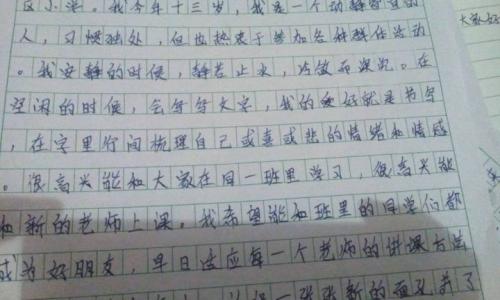 区小学。我今年十三岁，我是一个动静皆宜的
人，习惯独处，但也热衷于参加各种群体活动
。我安静的时候，静若止水，冷敛而深沉。在
空闲的时候，会写写文字，我的爱好就是书写
，在字里行间梳理自己或喜或悲的情绪和情感
。很高兴能和大家在同一班里学习，很高兴能
和新的老师上课。我希望能和班里的同学们都
成为好朋友，早日适应每一个老师的讲课方法
一张张新的面孔，并了
大家好